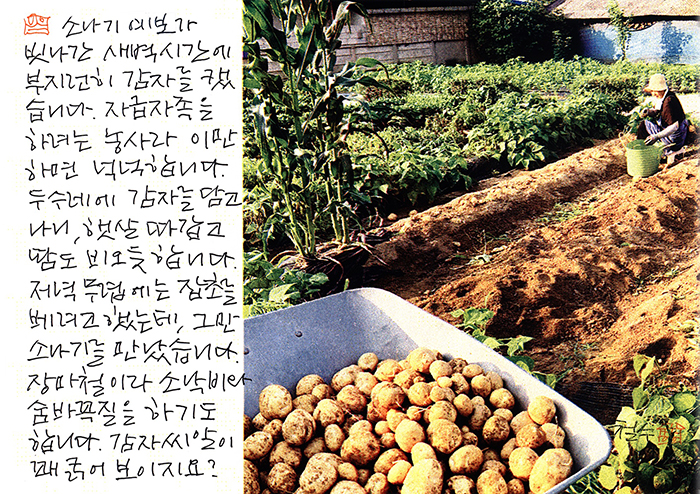 소나기 예보가
빗나간 새벽시간에
부지런히 감자를 캤
습니다. 자급자족을
하려는 농사라 이만
하면 넉넉합니다.
두수레에 감자를 담고
나니, 햇살 따갑고
땀도 비오듯 합니다.
저녁 무렵에는 잡초를
베려고 했는데, 그만
소나기를 만났습니다.
장마철이라 소낙비와
숨바꼭질을 하기도
합니다. 감자씨알이
꽤 굵어 보이지요?